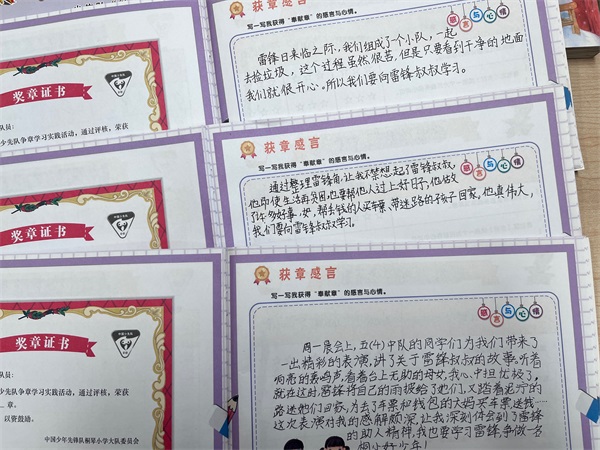 获章感言
写一写我获得“奉献章”的感言与心情。
感言与心情
雷锋日来临之际，我们组成了个小队，一起
去捡垃圾，这个过程虽然很苦，但是只要看到干净的地面
我们就很开心。所以我们要向雷锋叔叔学习。
奖章证书
队员：
少先队争章学习实践活动，通过评核，荣获
获章感言
写一写我获得“奉献章”的感言与心情。
感言与心情
通过整理雷锋角，让我不禁想起了雷锋叔叔，
他即使生活再贫困，也要帮他人过上好日子，他做
了许多好事，如，帮丢钱的人买车票、带迷路的孩子回家，他真伟大，
我们要向雷锋叔叔学习。
奖章证书
队员：
少先队争章学习实践活动，通过评核，荣获
获章感言
写一写我获得“奉献章”的感言与心情。
感言与心情
周一晨会上，五(4)中队的同学们为我们带来了
一出精彩的表演，讲了关于雷锋叔叔的故事。听着
响亮的轰鸣声，看着台上无助的母女，我心中担忧极了，
就在这时，雷锋将自己的雨披给了她们，又踏着泥泞的
路送她们回家，为丢了车票和钱包的大妈买车票送我
这次表演对我的感解颇深，让我深刻体会到了雷锋
的助人精神，我也要学习雷锋，争做一名
奖章证书
队员：
少先队争章学习实践活动，通过评核，荣获
章。
以资鼓励。
中国少年先锋队桐琴小学大队委员会